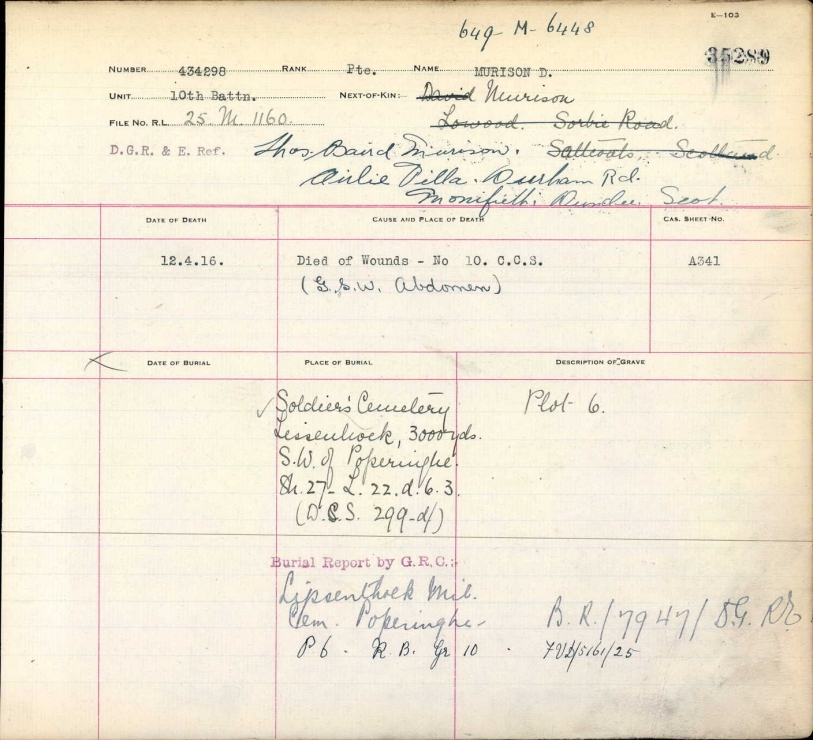 E-103
649-M-6448
35289
NUMBER 434298 RANK Pte. NAME MURISON D.
UNIT 10th Battn. NEXT-OF-KIN:- David Murison
FILE NO. R.L. 25. M. 1160. Lowood. Sorbie Road.
D.G.R. & E. Ref. Thos. Baird Murison. Saltcoats, Scotland.
Airlie Villa. Durham Rd.
Monifieth: Dundee. Scot.
DATE OF DEATH CAUSE AND PLACE OF DEATH CAS. SHEET NO.
12.4.16. Died of Wounds - No 10. C.C.S. A341
(G.S.W. Abdomen)
DATE OF BURIAL PLACE OF BURIAL DESCRIPTION OF GRAVE
Soldier's Cemetery Plot 6.
Lissenhock, 3000 yds.
S.W. of Poperinghe.
Sh. 27 - L. 22. d. 6. 3.
(D.C.S. 299-d/)
Burial Report by G.R.C:-
Lijssenthoek Mil.
Cem. Poperinghe - B.R./7947/D.G.R&E
P 6. R. B. Gr 10. 7VD/5161/25